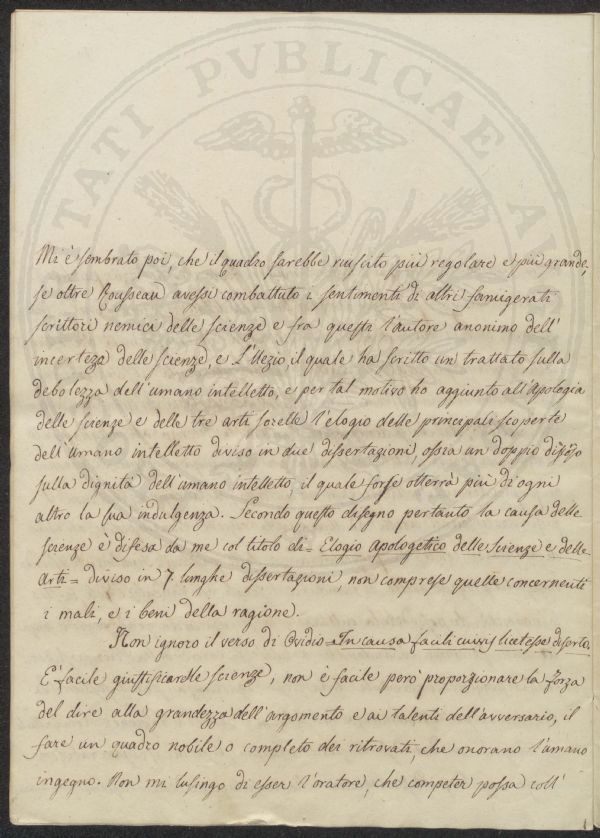 TATI PVBLICAE AV
Mi è sembrato poi, che il quadro sarebbe riuscito più regolare e più grande,
se oltre Rousseau avessi combattuto i sentimenti di altri famigerati
scrittori nemici delle scienze e fra questi l'autore anonimo dell'
incerteza delle scienze, e L'Uezio, il quale ha scritto un trattato sulla
debolezza dell'umano intelletto, e per tal motivo ho aggiunto all'Apologia
delle scienze e delle tre arti sorelle l'elogio delle principali scoperte
dell'Umano intelletto diviso in due dissertazioni, ossia un doppio
sulla dignità dell'umano intelletto, il quale forse otterrà più di ogni
altro la sua indulgenza. Secondo questo disegno pertanto la causa delle
scienze è difesa da me col titolo di = Elogio apologetico delle Scienze e delle
Arti = diviso in 7 lunghe dissertazioni, non comprese quelle concernenti
i mali, e i beni della ragione.
Non ignoro il verso di Ovidio = In causa facili cuivis licet esse diserto.
E' facile giustificar le scienze, non è facile però proporzionare la forza
del dire alla grandezza dell'argomento e ai talenti dell'avversario, il
fare un quadro nobile o completo dei ritrovati, che onorano l'umano
ingegno. Non mi lusingo di esser l'oratore, che competer possa coll'